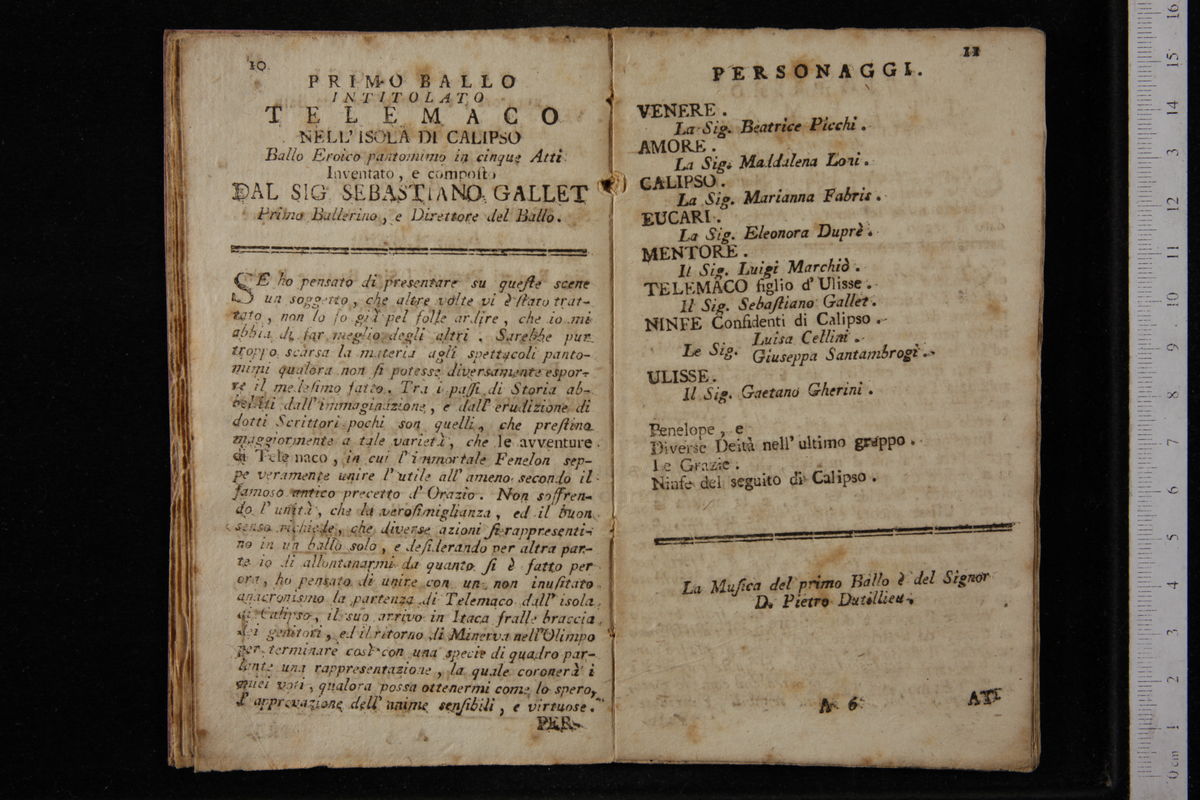 10
PRIMO BALLO
INTITOLATO
TELEMACO
NELL' ISOLA DI CALIPSO
Ballo Eroico pantomimo in cinque Atti
Inventato, e composto
DAL SIG SEBASTIANO GALLET
Primo Ballerino, e Direttore del Ballo.
SE ho pensato di presentare su queſte scene
un soggetto, che altre volte vi è ſtato trat-
tato, non lo fo già pel folle ardire, che io mi
abbia di far meglio degli altri. Sarebbe pur
troppo scarsa la materia agli spettacoli panto-
mimi qualora non ſi potesse diversamente espor-
re il medeſimo fatto. Tra i paſſi di Storia ab-
belliti dall' immaginazione, e dall' erudizione di
dotti Scrittori pochi son quelli, che preſtino
maggiormente a tale varietà, che le avventure
di Telemaco, in cui l' immortale Fenelon sep-
pe veramente unire l' utile all' ameno secondo il
famoso antico precetto d' Orazio. Non soffren-
do l' unità, che la veroſimiglianza, ed il buon
senso richiede, che diverse azioni ſi rappresenti-
no in un ballo solo, e deſiderando per altra par-
te io di allontanarmi da quanto ſi è fatto per
ora, ho pensato di unire con un non inuſitato
anacronismo la partenza di Telemaco dall' isola
di Calipso, il suo arrivo in Itaca fralle braccia
dei genitori, ed il ritorno di Minerva nell' Olimpo
per terminare così con una specie di quadro par-
lante una rappresentazione, la quale coronerà i
miei voti, qualora possa ottenermi come lo spero,
l' approvazione dell' anime senſibili, e virtuose.
PER-
11
PERSONAGGI.
VENERE.
La Sig. Beatrice Picchi.
AMORE.
La Sig. Maddalena Lovi.
CALIPSO.
La Sig. Marianna Fabris.
EUCARI.
La Sig. Eleonora Duprè.
MENTORE.
Il Sig. Luigi Marchiò.
TELEMACO figlio d' Ulisse.
Il Sig. Sebaſtiano Gallet.
NINFE Confidenti di Calipso.
Le Sig. Luisa Cellini.
Giuseppa Santambrogi.
ULISSE.
Il Sig. Gaetano Gherini.
Penelope, e
Diverse Deità nell' ultimo gruppo.
Le Grazie.
Ninfe del seguito di Calipso.
La Muſica del primo Ballo è del Signor
D. Pietro Dutillieu.
A 6
ATT
0 cm 1 2 3 4 5 6 7 8 9 10 11 12 13 14 15 16